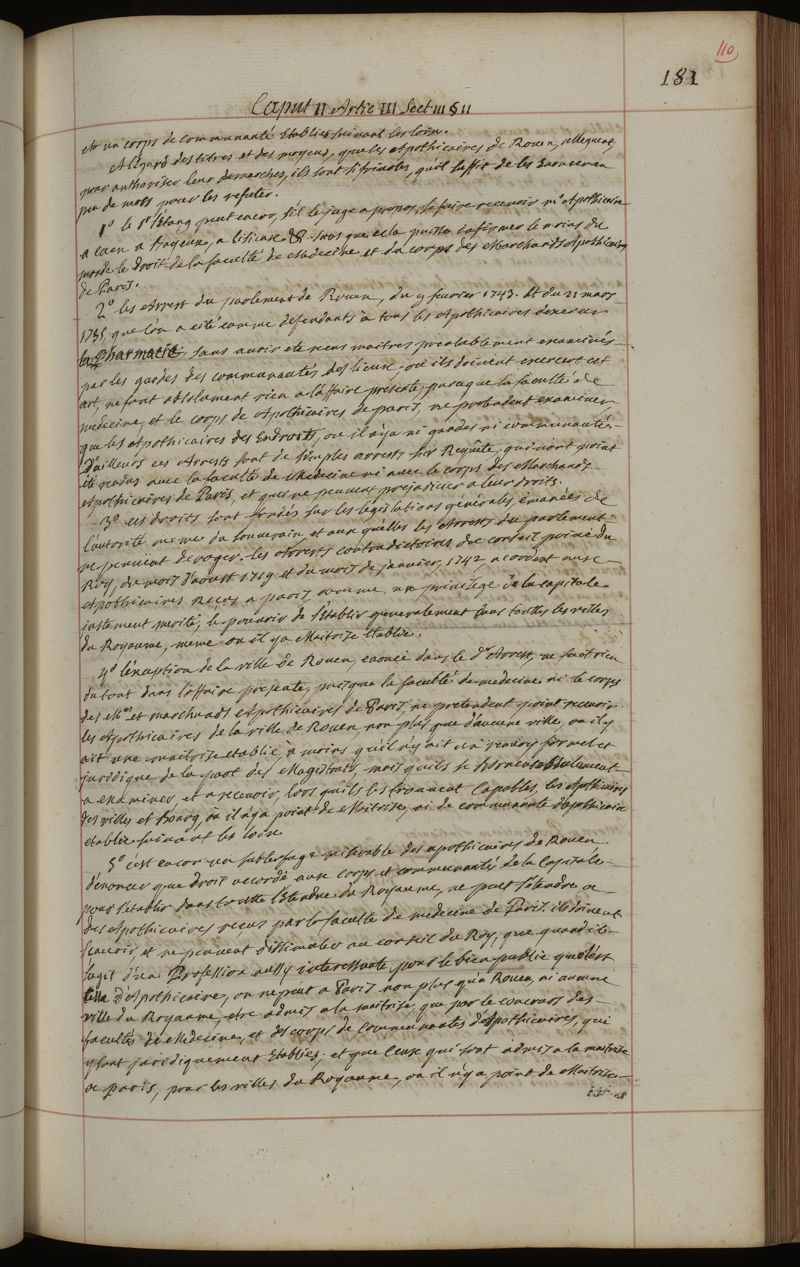 110
181
Caput II Artic III Sect III § II
et un corps de communauté Etablies suivant les loix.
A l'égard des titres et des moyens, que les Apothicaires de Rouen, alleguent,
pour authoriser leur demarches, ils sont si frivoles, qu'il suffit de les Enoncer en
peu de mots pour les refuter.
1º le Sr Etang peut encor, s'il le juge a propos, se faire recevoir me Apothicaire
a Caen a Bayeux, a lisieux &c. sans que cela puisse infirmer le moins du
monde le droit de la faculté de Medecine et du corps des Marchands Apothicaires
de Paris.
2º les Arrest du parlement de Rouen, du 9 fevrier 1743. Et du 21 mars
1735, que l'on a cité comme defendants à tous les Apothicaires d'exercer
la Pharmacie, sans avoir eté recus maitres prealablement examinés
par les gardes des communautés des lieux, où ils doivent exercer cet
art, ne font absolument rien a l'affaire presente, puisque la faculté de
medecine, et le corps de Apothicaires de paris, ne pretendent examiner
que les Apothicaires des Endroits, ou il n'y a ni gardes ni communautés
D'ailleurs ces Arrests sont de simples arrests sur Requête, qui n'ont point
été rendus avec la faculté de Medecine ni avec le corps des Marchands
Apothicaires de Paris, et qui ne peuvent prejudicier a leur droits.
3º ces droits sont fondés sur les législations générales, émanées de
l'autorité meme du souverain et aux quelles les Arrests du parlement
ne peuvent deroger. les Arrests contradictoires du conseil privé du
Roy, du mois d'aoust 1719 et du mois de janvier 1742, accordent aux
Apothicaires Reçus a paris comme un privilege de la capitale
justement merité, le pouvoir de s'établir generalement dans touttes les villes
du Royaume, meme ou il y a Maitrise Etablie.
4º l'exception de la ville de Rouen, enoncé dans le dr Arrest, ne fait rien
du tout dans l'affaire presente, puisque la faculté de medecine ni le corps
des Mes et marchands Apothicaires de Paris ne pretendent point recevoir
les Apothicaires de la ville de Rouen, non plus que d'aucune ville, ou il y
ait une maitrise etablie, à moins qu'il n'y ait un renvoy formel et
juridique de la part des Magistrats, mais qu'ils se bornent seulement
a examiner, et a recevoir, lors qu'ils les trouvent capables, les Apothicaires
des villes et bourg, où il n'y a point de Maitrise, ni de communauté d'apothicaire
etablie suivant les loix
5º c'est encor un subterfuge miserable des apothicaires de Rouen
d'enoncer que droit accordé aux corps et communautés de la Capitale
pour s'établir dans toutte l'Etendue du Royaume, ne peut s'étendre a
des Apothicaires recus par la faculté de medecine de Paris. ils doivent
scavoir, et ne peuvent dissimuler au conseil du Roy, que quand il
s'agit d'une Profession aussy interessante pour le bien public qu'est
celle d'Apothicaire, on ne peut a Paris non plus qu'a Rouen, ni aucune
ville du Royaume, etre admis a la maitrise que par le concours des
facultés de Medecine, et des corps de communautes d'Apothicaires, qui
y sont juridiquement Etablies, et que ceux qui sont admis a la maitrise
a paris, pour les villes du Royaume, ou il n'y a point de Maitrise